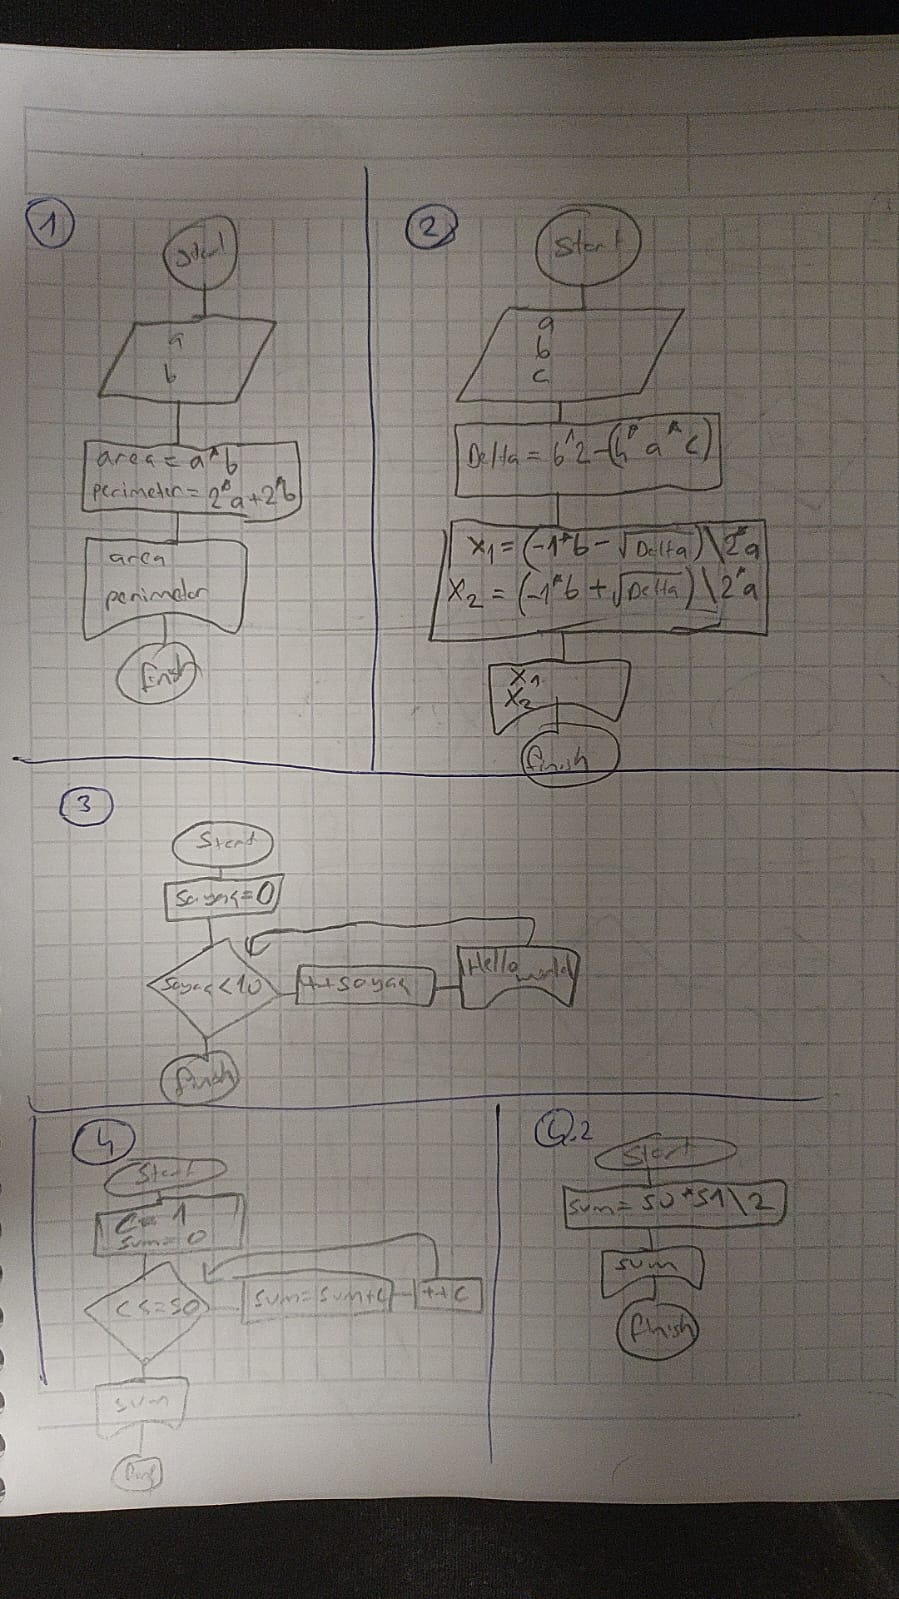 1
Start
a
b
area = a*b
perimeter = 2*a+2*b
area
perimeter
finish
2
Start
a
b
c
Delta = b^2-(4*a*c)
x₁ = (-1*b-√Delta)\2*a
x₂ = (-1*b+√Delta)\2*a
x₁
x₂
finish
3
Start
Sayaç=0
Sayaç<10
++Sayaç
Hello world
finish
4
Start
C= 1
sum= 0
C<=50
sum=sum+c
++c
sum
4.2
Start
sum= 50*51\2
sum
finish